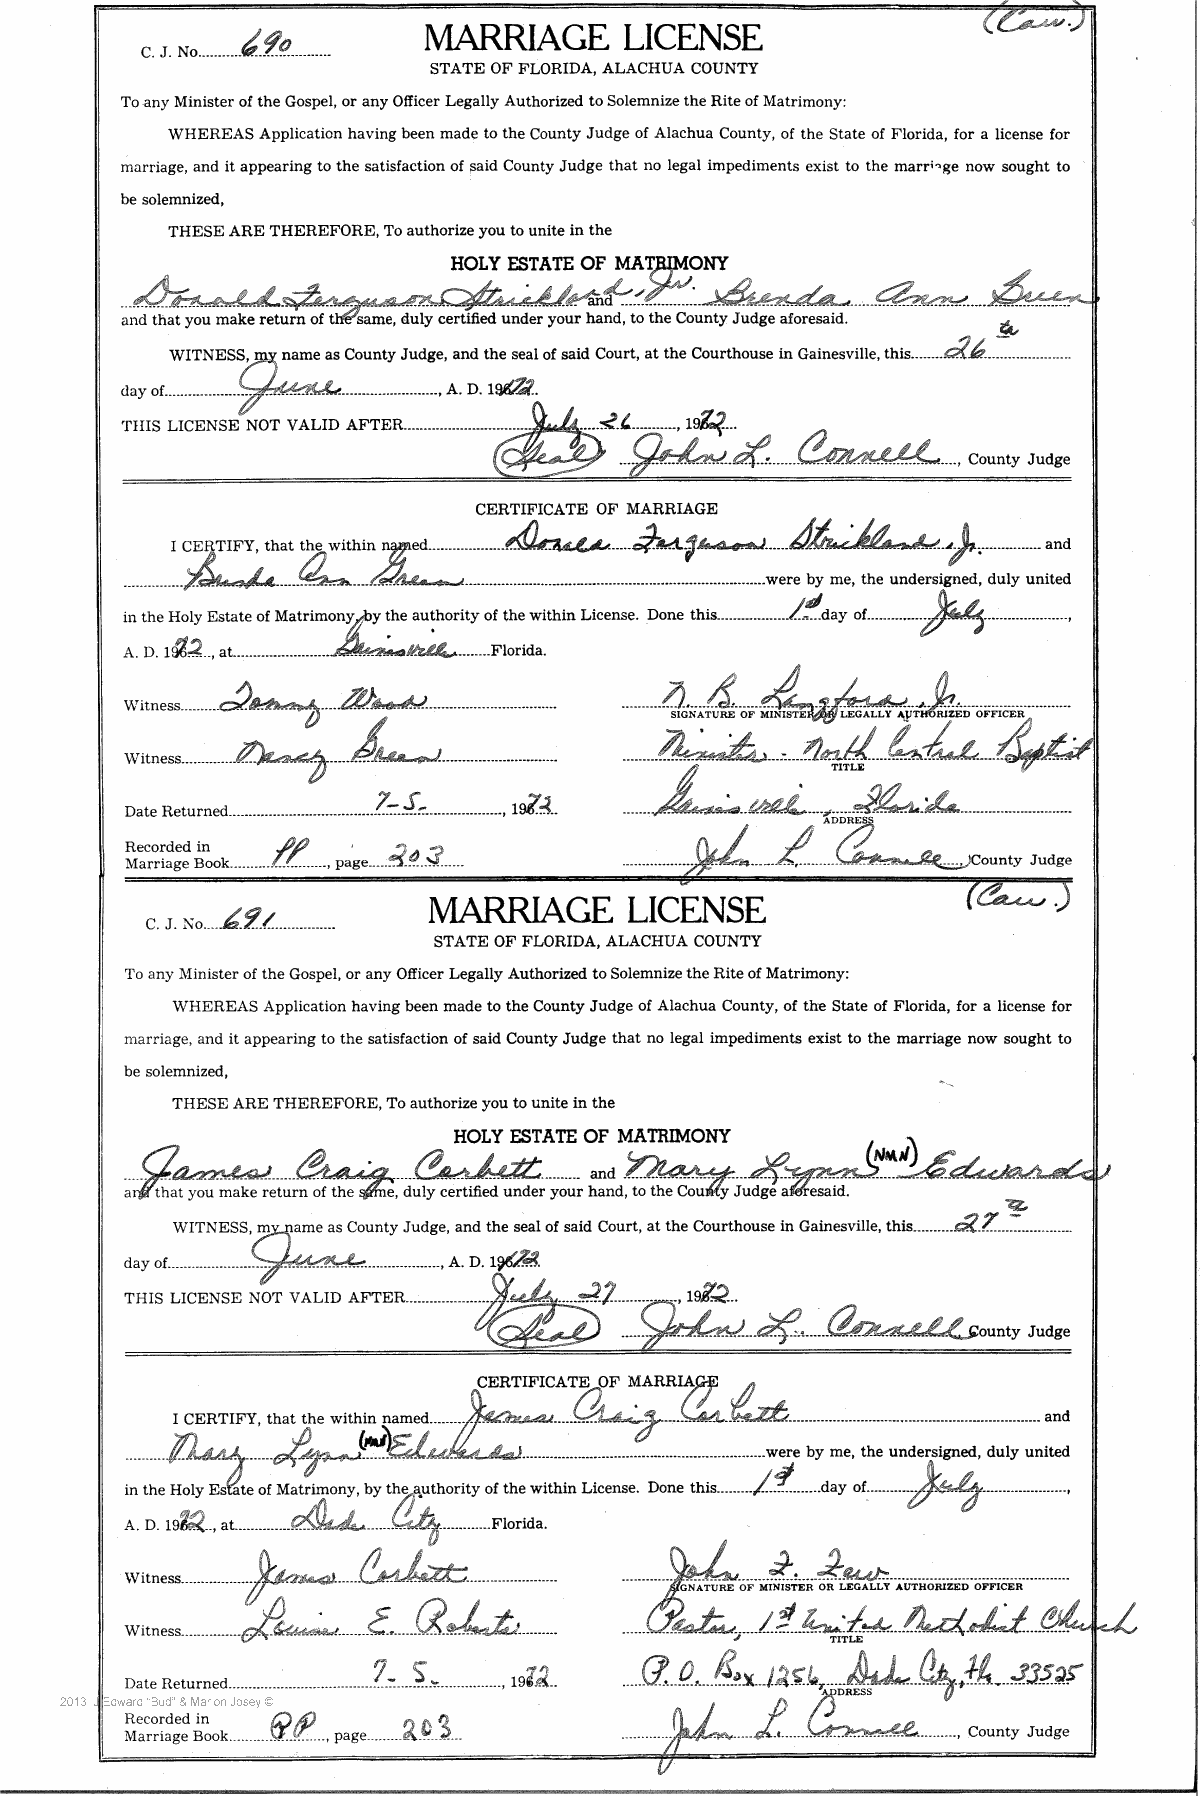 (Cau.)
C. J. No. 690 MARRIAGE LICENSE
STATE OF FLORIDA, ALACHUA COUNTY
To any Minister of the Gospel, or any Officer Legally Authorized to Solemnize the Rite of Matrimony:
WHEREAS Application having been made to the County Judge of Alachua County, of the State of Florida, for a license for
marriage, and it appearing to the satisfaction of said County Judge that no legal impediments exist to the marriage now sought to
be solemnized,
THESE ARE THEREFORE, To authorize you to unite in the
HOLY ESTATE OF MATRIMONY
Donald Ferguson Strickland, Jr. and Brenda Ann Green
and that you make return of the same, duly certified under your hand, to the County Judge aforesaid.
WITNESS, my name as County Judge, and the seal of said Court, at the Courthouse in Gainesville, this 26th
day of June, A. D. 1972
THIS LICENSE NOT VALID AFTER July 26, 1972
(Seal) John L. Connell, County Judge
CERTIFICATE OF MARRIAGE
I CERTIFY, that the within named Donald Ferguson Strickland, Jr. and
Brenda Ann Green were by me, the undersigned, duly united
in the Holy Estate of Matrimony, by the authority of the within License. Done this 1st day of July,
A. D. 1972, at Gainesville Florida.
Witness Tommy Wood N. B. Langford, Jr.
SIGNATURE OF MINISTER OR LEGALLY AUTHORIZED OFFICER
Witness Nancy Green Minister - North Central Baptist
TITLE
Date Returned 7-5-, 1972 Gainesville, Florida
ADDRESS
Recorded in
Marriage Book PP, page 203 John L. Connell, County Judge
(Cau.)
C. J. No. 691 MARRIAGE LICENSE
STATE OF FLORIDA, ALACHUA COUNTY
To any Minister of the Gospel, or any Officer Legally Authorized to Solemnize the Rite of Matrimony:
WHEREAS Application having been made to the County Judge of Alachua County, of the State of Florida, for a license for
marriage, and it appearing to the satisfaction of said County Judge that no legal impediments exist to the marriage now sought to
be solemnized,
THESE ARE THEREFORE, To authorize you to unite in the
HOLY ESTATE OF MATRIMONY
James Craig Corbett and Mary Lynn (NMN) Edwards
and that you make return of the same, duly certified under your hand, to the County Judge aforesaid.
WITNESS, my name as County Judge, and the seal of said Court, at the Courthouse in Gainesville, this 27th
day of June, A. D. 1972
THIS LICENSE NOT VALID AFTER July 27, 1972
(Seal) John L. Connell County Judge
CERTIFICATE OF MARRIAGE
I CERTIFY, that the within named James Craig Corbett and
Mary Lynn (NMN) Edwards were by me, the undersigned, duly united
in the Holy Estate of Matrimony, by the authority of the within License. Done this 1st day of July,
A. D. 1972, at Dade City Florida.
Witness James Corbett John F.
SIGNATURE OF MINISTER OR LEGALLY AUTHORIZED OFFICER
Witness Louise E. Roberts Pastor, 1st United Methodist Church
TITLE
Date Returned 7-5-, 1972 P.O. Box 1256, Dade City, Fla. 33525
ADDRESS
2013 J Edward "Bud" & Marion Josey ©
Recorded in
Marriage Book PP, page 203 John L. Connell, County Judge